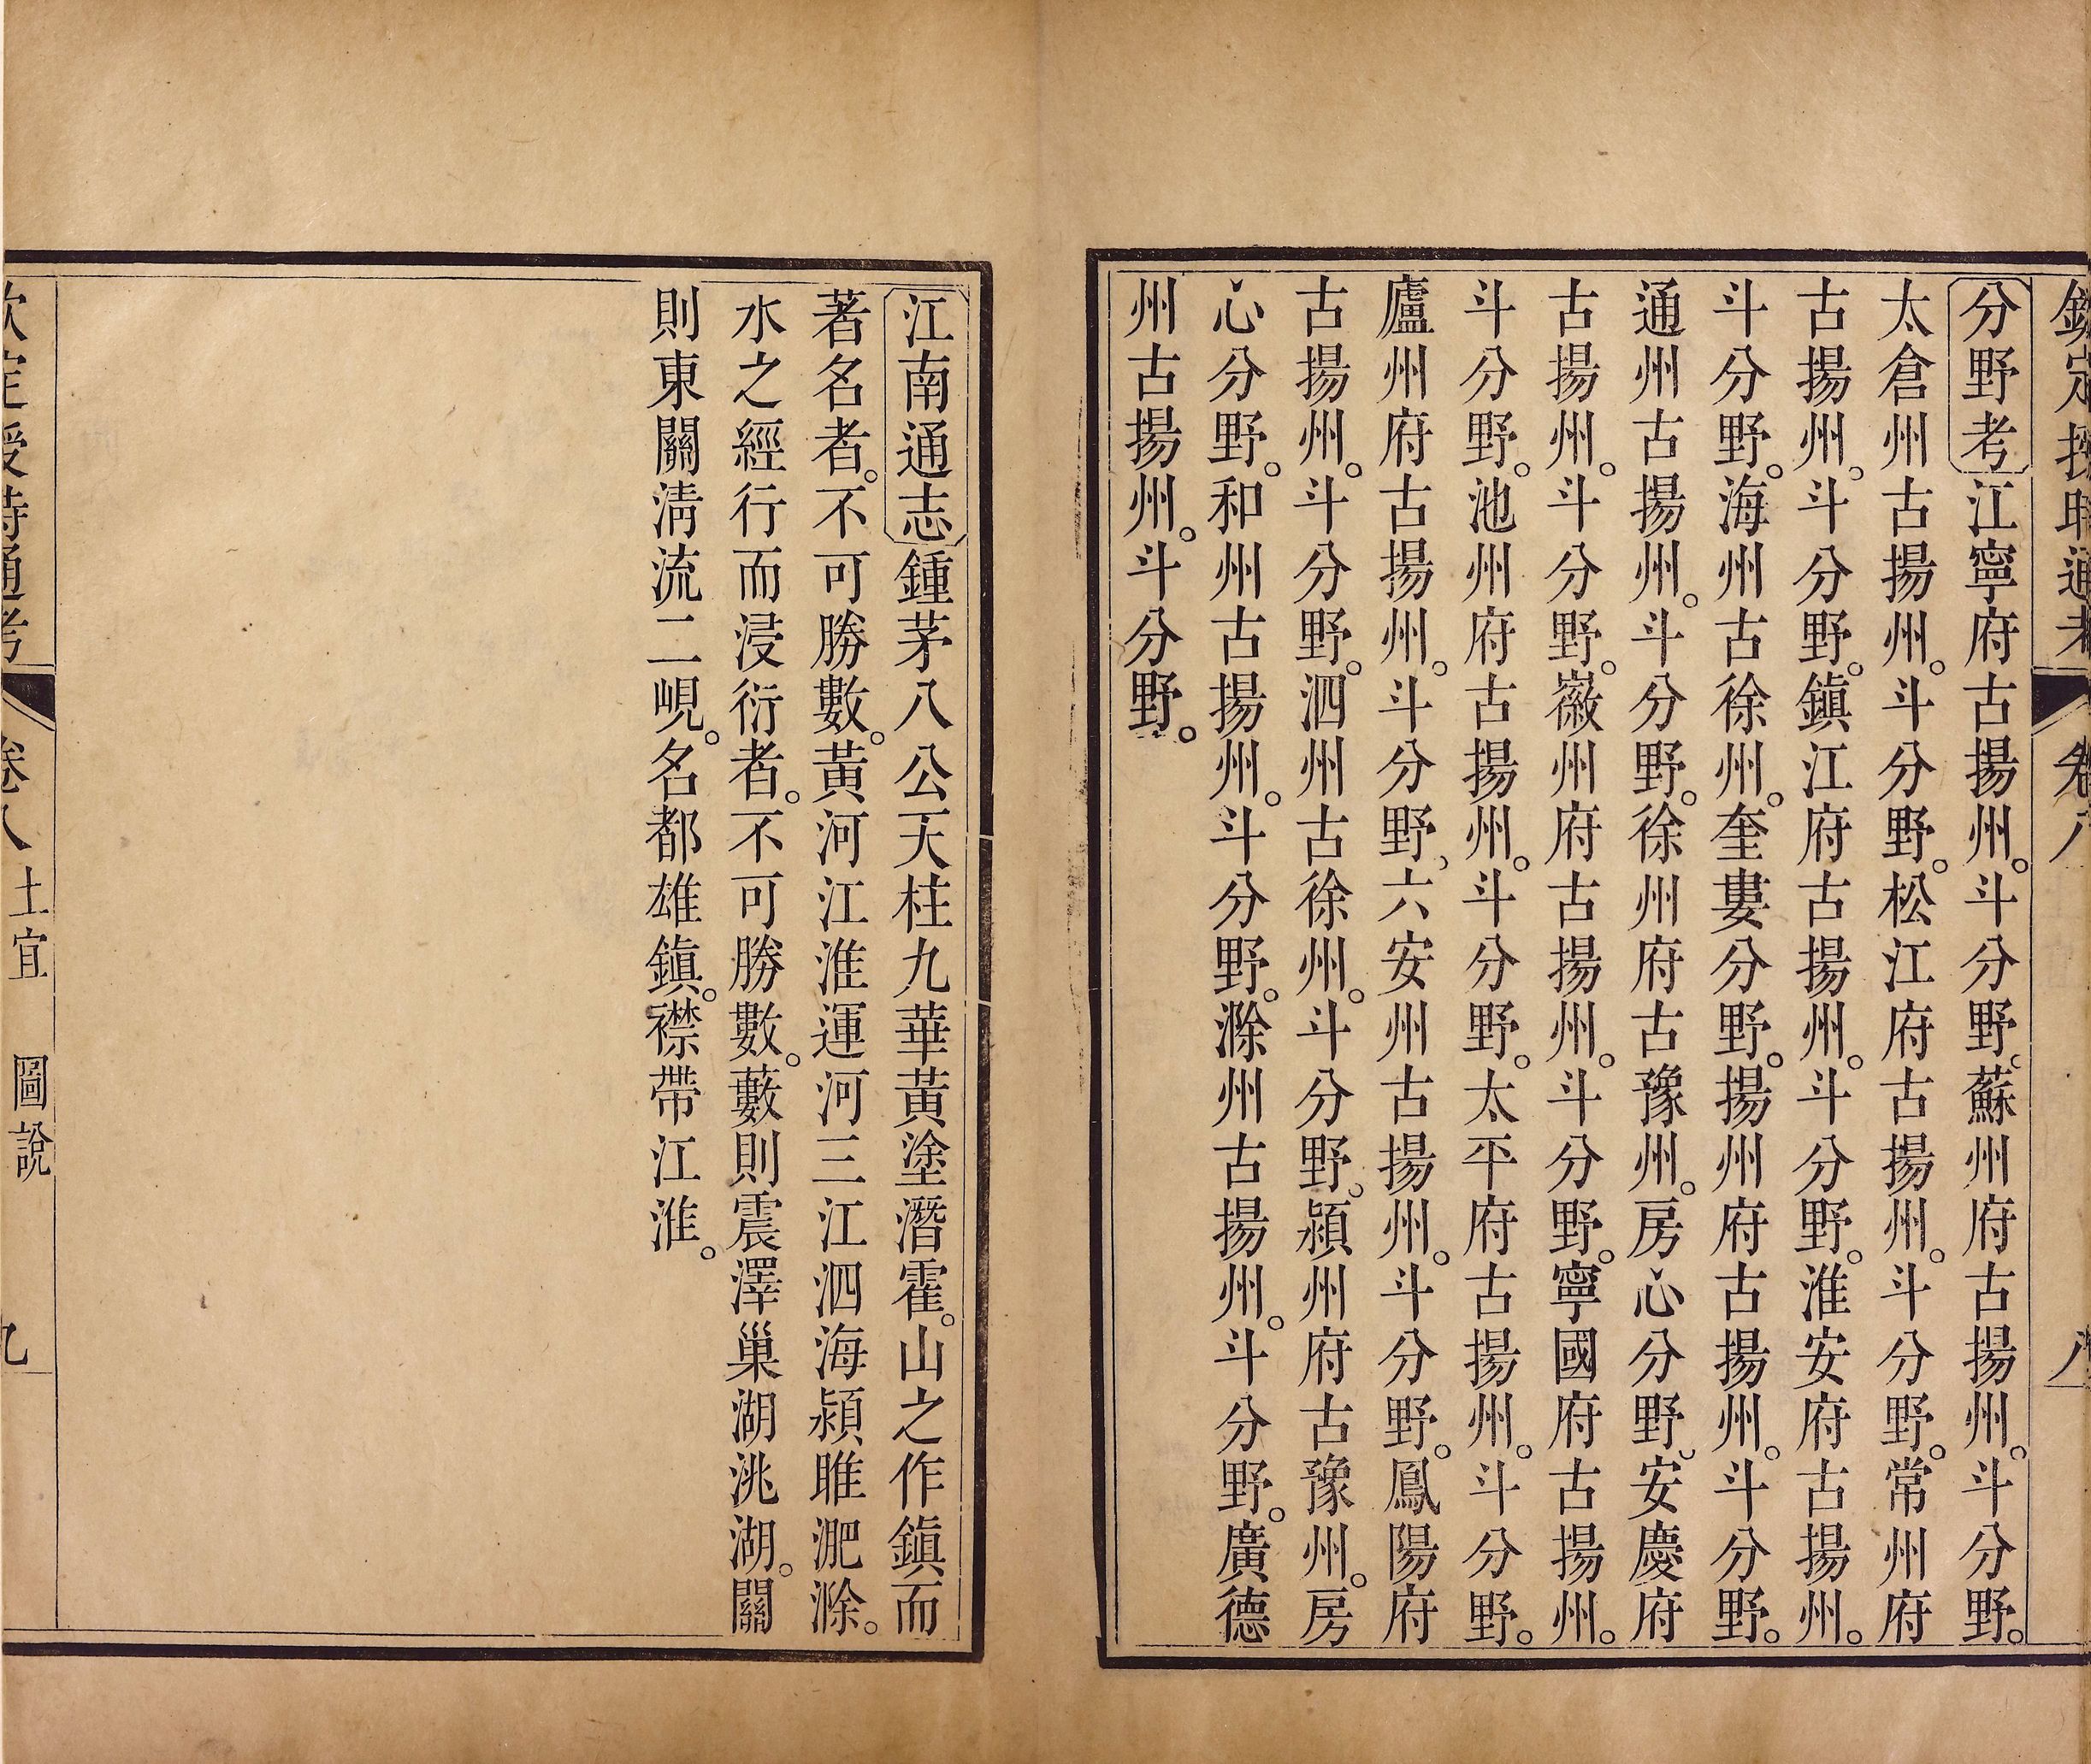 欽定授時通考 卷八 八
分野考江寧府古揚州。斗分野。蘇州府古揚州。斗分野。
太倉州古揚州。斗分野。松江府古揚州。斗分野。常州府
古揚州。斗分野。鎮江府古揚州。斗分野。淮安府古揚州。
斗分野。海州古徐州。奎婁分野。揚州府古揚州。斗分野。
通州古揚州。斗分野。徐州府古豫州。房心分野。安慶府
古揚州。斗分野。徽州府古揚州。斗分野。寧國府古揚州。
斗分野。池州府古揚州。斗分野。太平府古揚州。斗分野。
廬州府古揚州。斗分野。六安州古揚州。斗分野。鳳陽府
古揚州。斗分野。泗州古徐州。斗分野。潁州府古豫州。房
心分野。和州古揚州。斗分野。滁州古揚州。斗分野。廣德
州古揚州。斗分野。
江南通志鍾茅八公天柱九華黃塗潛霍。山之作鎮而
著名者。不可勝數。黃河江淮運河三江泗海潁睢淝滁。
水之經行而浸衍者。不可勝數。藪則震澤巢湖洮湖。關
則東關淸流二峴。名都雄鎮。襟帶江淮。
欽定授時通考 卷八 土宜 圖說 九